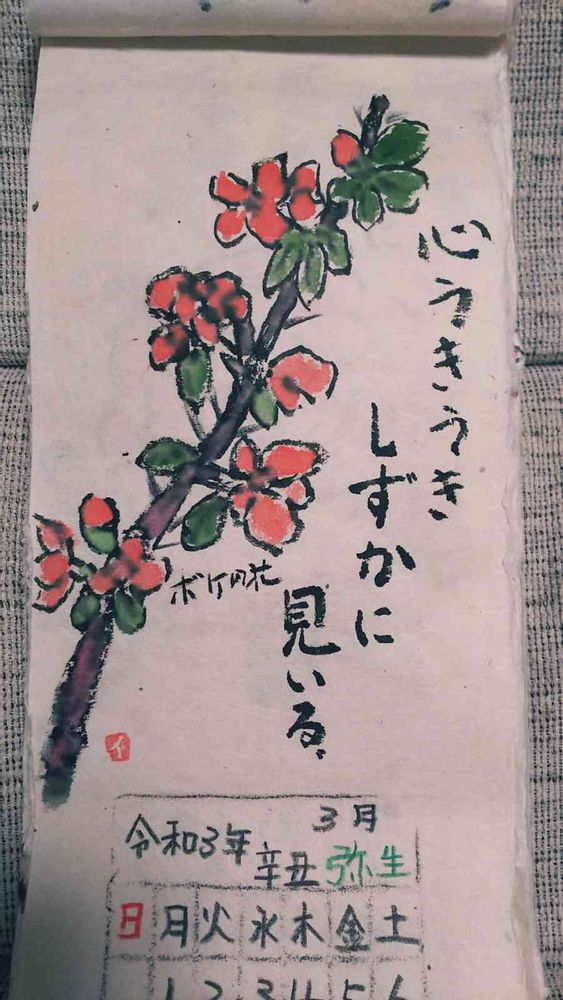 心うきうき
しずかに
見いる。
ボケの花
イ
3月
令和3年 辛丑 弥生
日 月 火 水 木 金 土
1 2 3 4 5 6